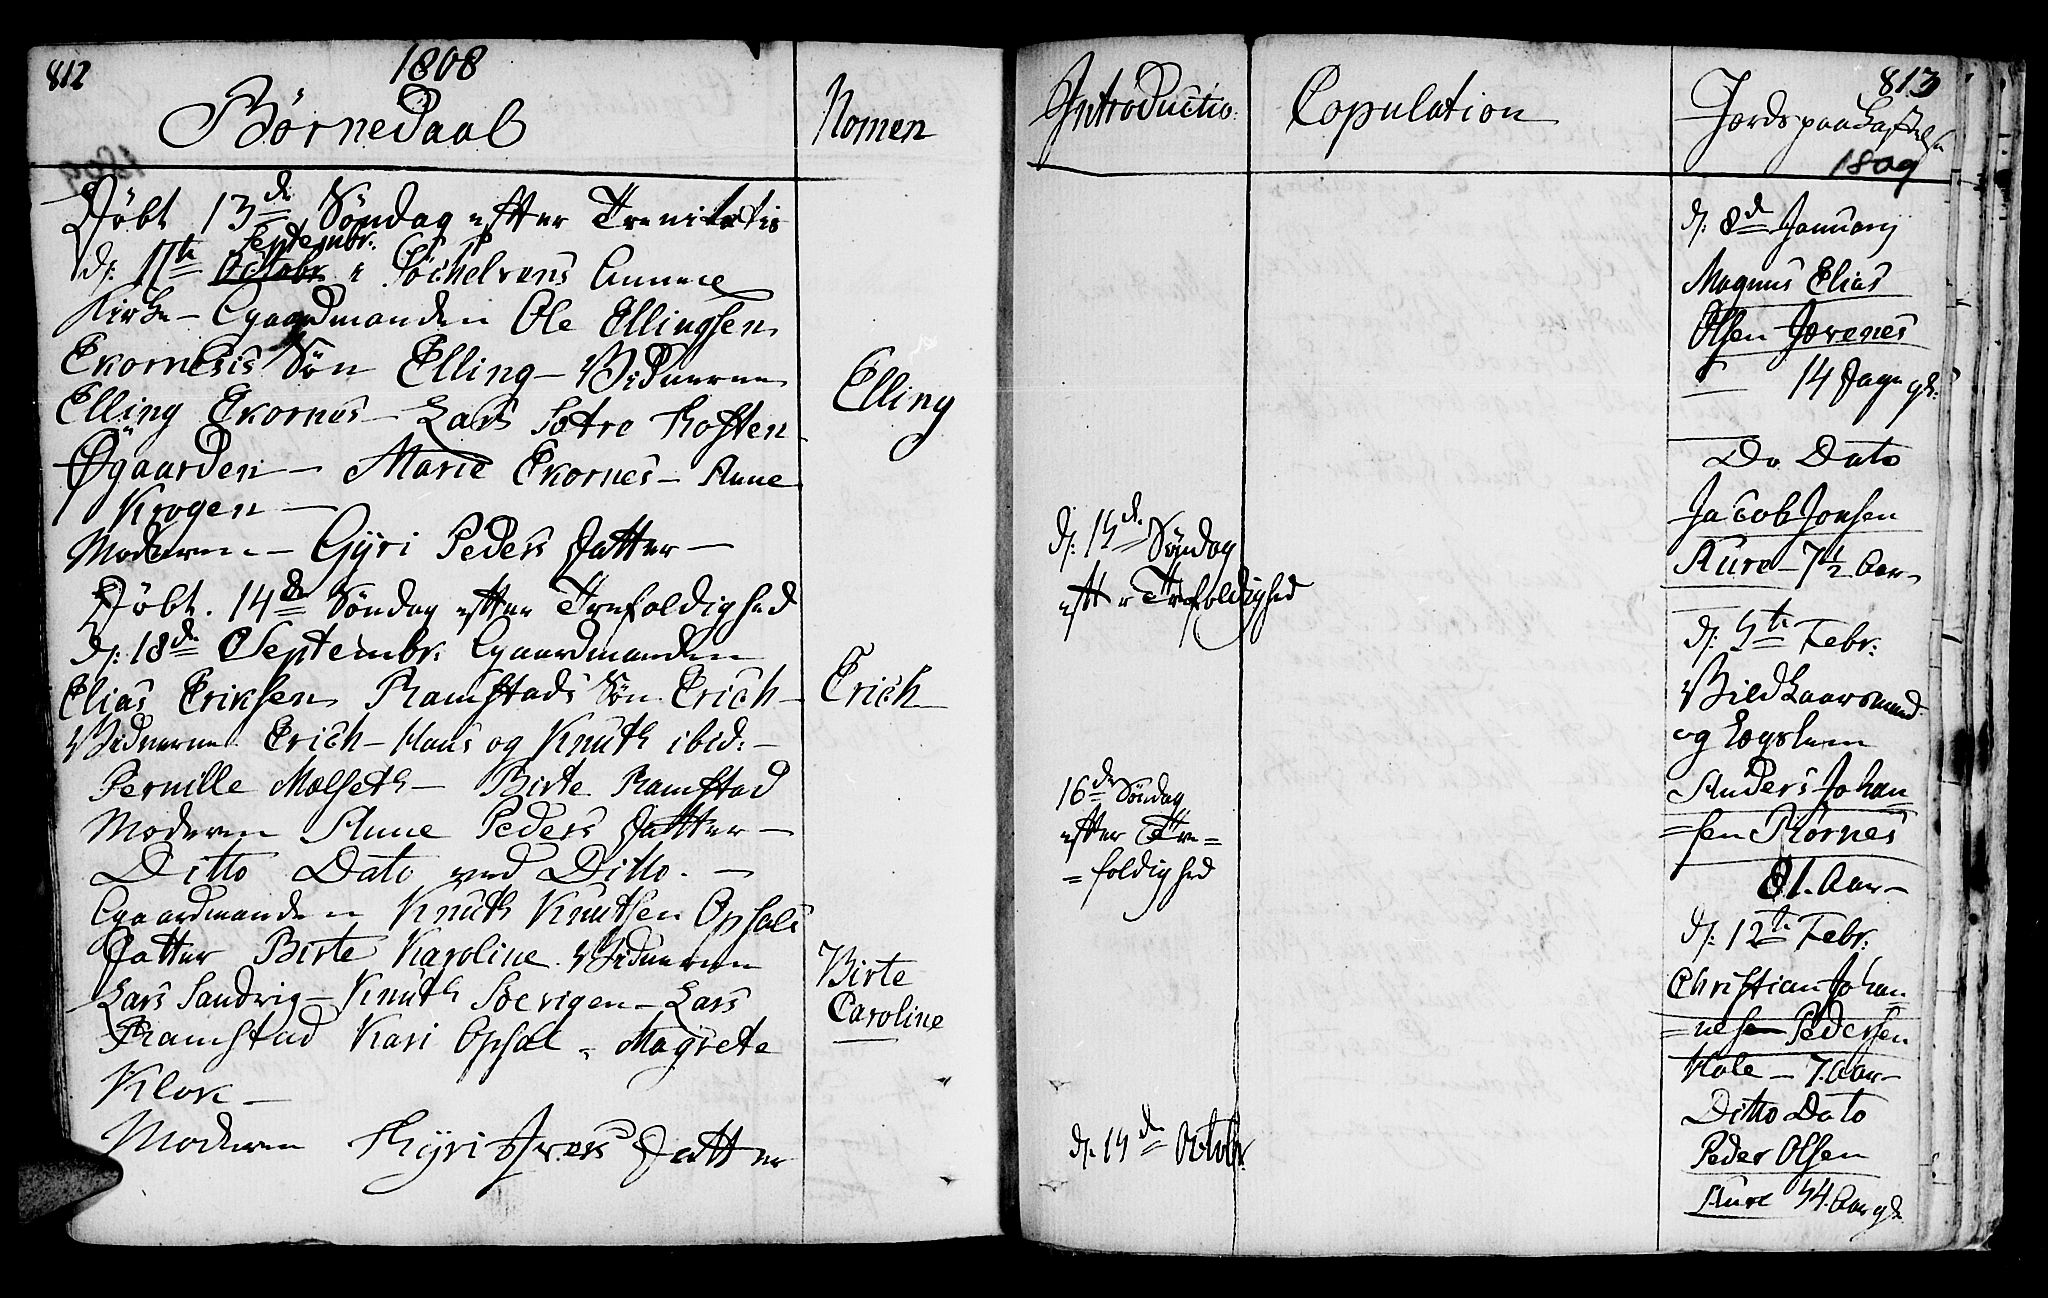 812
1808
BørneDaab
Nomen
Døbt 13de Søndag efter Trenitatis
Septembr:
d: 11te Octobr i Søchelvens Annexe
Kirke - Gaardmanden Ole Ellingsen
Ekornesis Søn Elling - Vidnerne
Elling Ekornes - Lars Sætre Torsten
Øgaarden - Marie Ekornes - Anne
Krogen -
Moderen - Gyri Peders Datter -
Døbt. 14de Søndag efter Trefoldighed
d: 18de Septembr: Gaardmanden
Elias Eriksen Ramstads Søn Erich -
Vidnerne Erich - Hans og Knuth ibid: -
Pernille Mælseth - Birte Ramstad
Moderen Anne Peders Datter -
Ditto Dato ved Ditto. -
Gaardmanden Knuth Knutsen Opsals
Datter Birte Karoline. Vidnerne
Lars Sandvig - Knuth Soevigen - Lars
Ramstad Kari Opsal - Magrete
Klok -
Moderen Kyri Ivers Datter
Elling
Erich
Birte
Caroline
813
Introductio:
Copulation
Jordspaakastelse
1809
d: 15de Søndag
efter Trefoldighed
16de Søndag
efter Tre=
=foldighed
d. 15de Octobr
d: 8de January
Magnus Elias
Olsen Jørenes
14 Dage gl:
Do Dato
Jacob Jonsen
Aure - 7½ Aar -
d: 5te Febr:
Vilkaarsmand
og Lægslem
Anders Johan
=sen Rørnes
81. Aar -
d: 12te Febr:
Christian Johan
=nesen Pedersen
Hole - 7. Aar -
Ditto Dato
Peder Olsen
Aure 54. Aar gl.